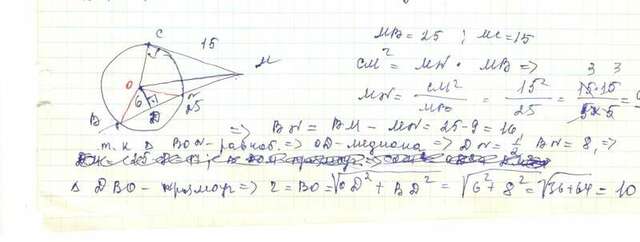 C
15
M
O
6
D
N
25
B
MB = 25 ; MC = 15
CM² = MN · MB =>
MN = CM²/MB = 15²/25 = 15·15/5·5 =
3 3
=> BN = BM - MN = 25 - 9 = 16
т.к Δ BON - равноб. => OD - медиана, => DN = 1/2 BN = 8, =>
Δ DBO - прямоуг => r = BO = √OD² + BD² = √6² + 8² = √36+64 = 10